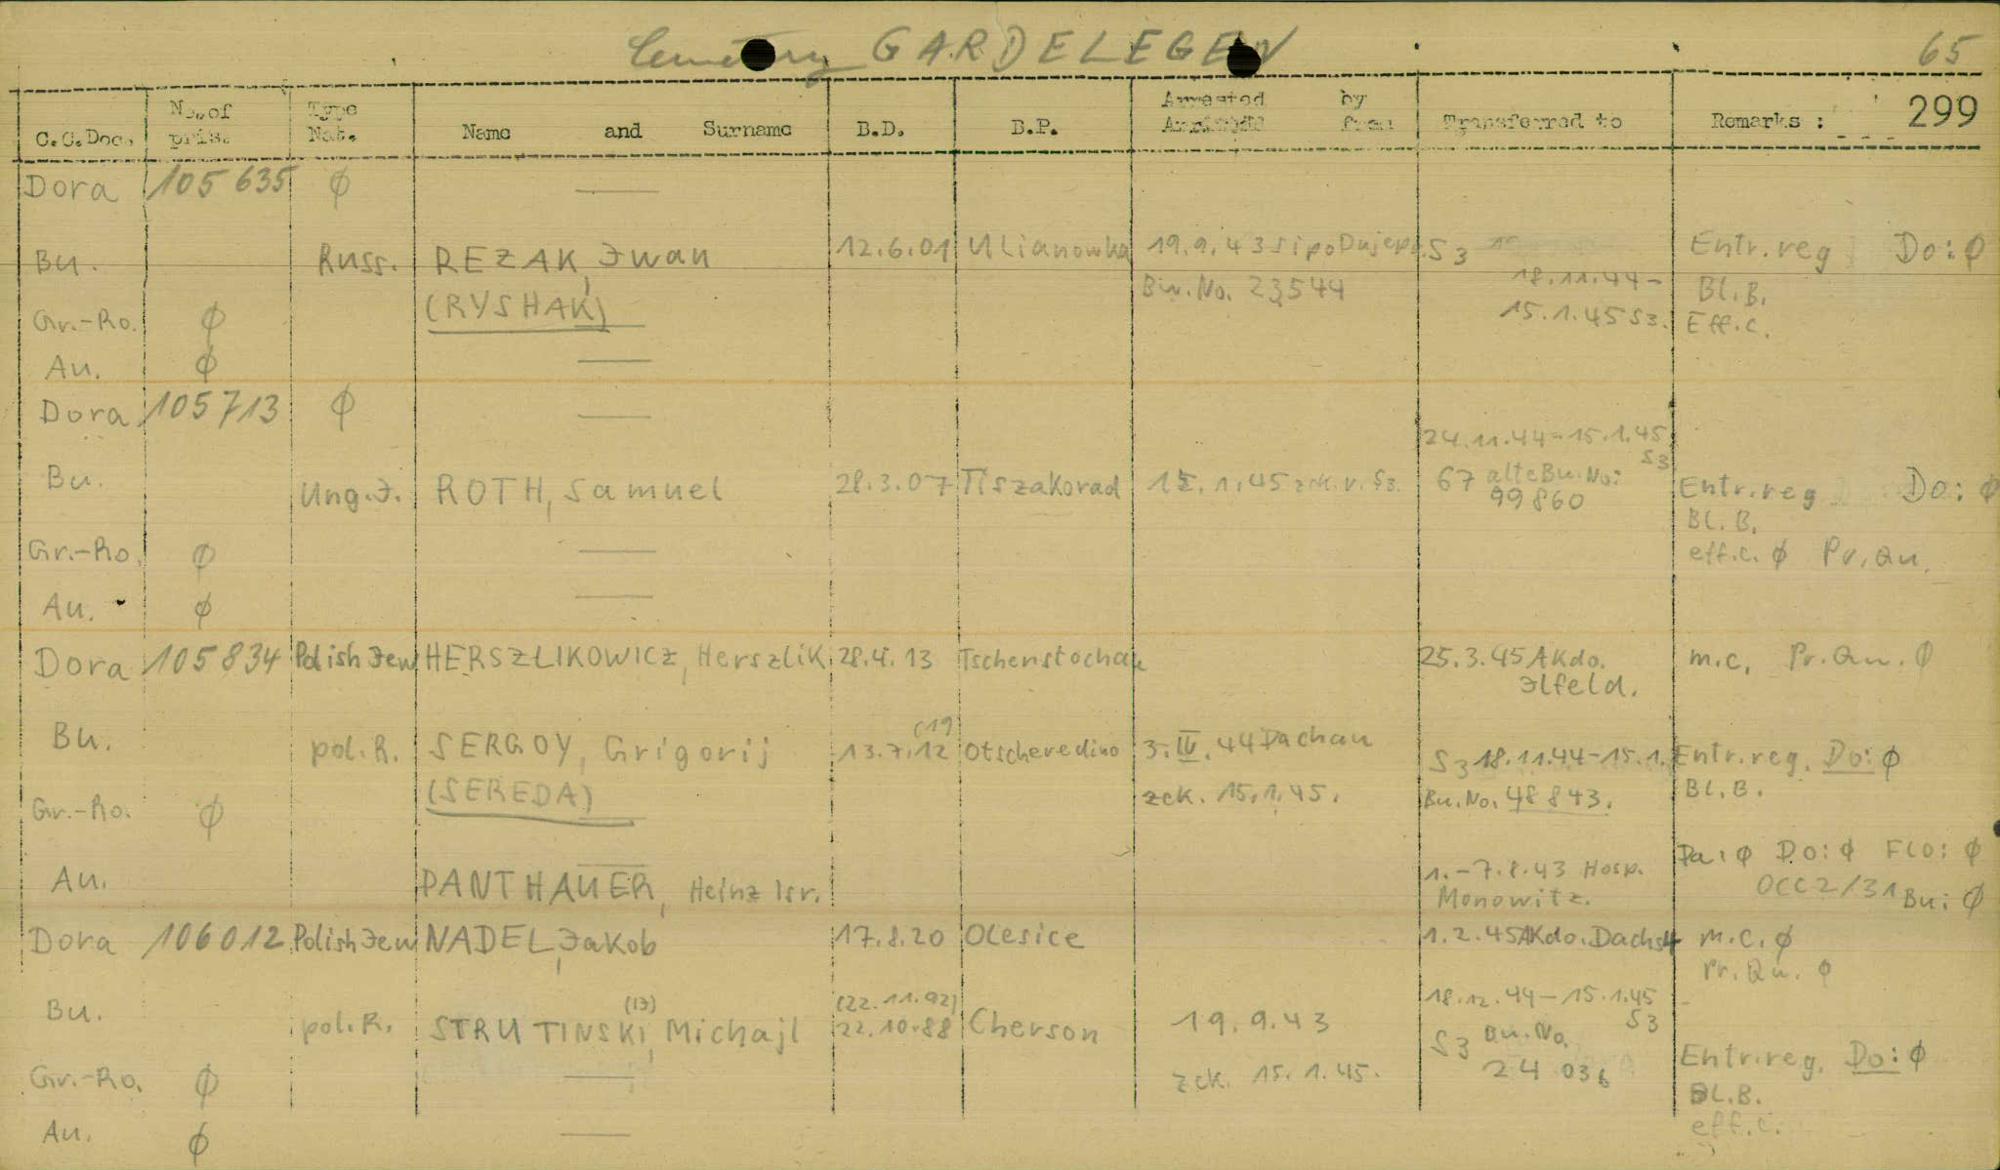 Cemetery GARDELEGEN 65
C.C.Doc. No. of pris. Type Nat. Name and Surname B.D. B.P. Arrested by from Transferred to Remarks : 299
Dora 105 635 Ø —
Bu. Russ. REZAK, Iwan 12.6.01 Ulianowka 19.9.43 Sipo Dnjepr. S3 Entr.reg Do: Ø
(RYSHAK) Bu.No. 23544 18.11.44- Bl.B.
Gr.-Ro. Ø — 15.1.45 S3. Eff.c.
Au. Ø —
Dora 105713 Ø —
24.11.44-15.1.45 S3
Bu. Ung.J. ROTH, Samuel 28.3.07 Tiszakorad 15.1.45 zck.v.S3. 67 alte Bu.No: 99860 Entr.reg Do: Ø
Bl.B.
Gr.-Ro. Ø — eff.c. Ø Pr.Qu.
Au. Ø —
Dora 105834 Polish Jew HERSZLIKOWICZ, Herszlik 28.4.13 Tschenstochau 25.3.45 AKdo. Ilfeld. m.c, Pr.Qu. Ø
(19)
Bu. pol.R. SERGOY, Grigorij 13.7.12 Otscheredino 3.IV.44 Dachau S3 18.11.44-15.1. Entr.reg. Do: Ø
(SEREDA) zck. 15.1.45. Bu.No. 48843. Bl.B.
Gr.-Ro. Ø —
Da: Ø Do: Ø Flo: Ø
Au. PANTHAUER, Heinz Isr. 1.-7.8.43 Hosp. Monowitz. OCC2/31 Bu: Ø
Dora 106012 Polish Jew NADEL, Jakob 17.8.20 Olesice 1.2.45 AKdo. Dachs4 m.c. Ø
Pr.Qu. Ø
(13) (22.11.92) 18.12.44-15.1.45 S3
Bu. pol.R. STRUTINSKI, Michajl 22.10.88 Cherson 19.9.43 S3 Bu.No. 24036
Gr.-Ro. Ø — zck. 15.1.45. Entr.reg. Do: Ø
Bl.B.
Au. Ø — eff.c.